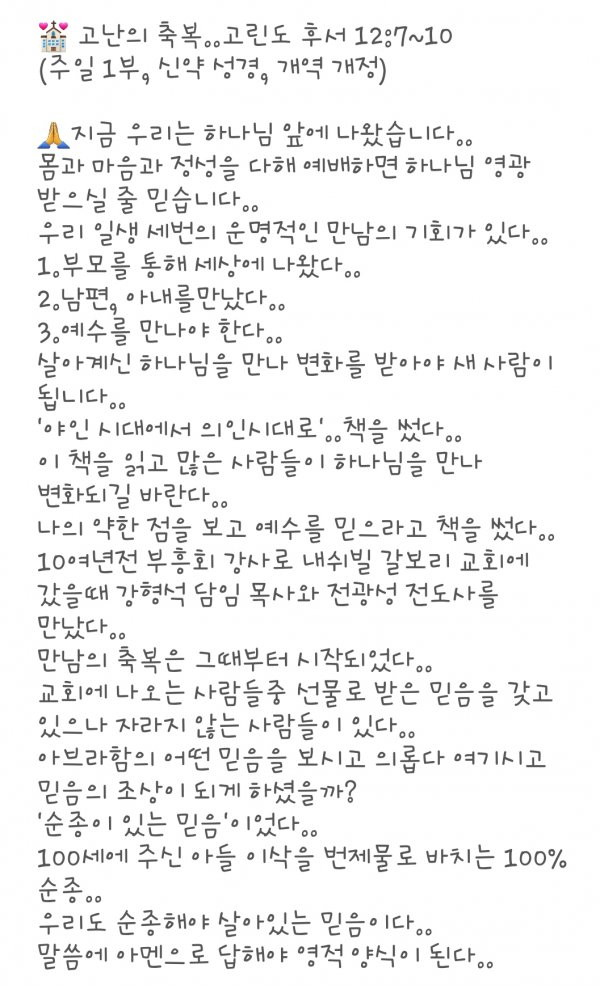 💒 고난의 축복..고린도 후서 12:7~10
(주일 1부, 신약 성경, 개역 개정)
🙏지금 우리는 하나님 앞에 나왔습니다..
몸과 마음과 정성을 다해 예배하면 하나님 영광
받으실 줄 믿습니다..
우리 일생 세번의 운명적인 만남의 기회가 있다..
1.부모를 통해 세상에 나왔다..
2.남편, 아내를만났다..
3.예수를 만나야 한다..
살아계신 하나님을 만나 변화를 받아야 새 사람이
됩니다..
'야인 시대에서 의인시대로'..책을 썼다..
이 책을 읽고 많은 사람들이 하나님을 만나
변화되길 바란다..
나의 약한 점을 보고 예수를 믿으라고 책을 썼다..
10여년전 부흥회 강사로 내쉬빌 갈보리 교회에
갔을때 강형석 담임 목사와 전광성 전도사를
만났다..
만남의 축복은 그때부터 시작되었다..
교회에 나오는 사람들중 선물로 받은 믿음을 갖고
있으나 자라지 않는 사람들이 있다..
아브라함의 어떤 믿음을 보시고 의롭다 여기시고
믿음의 조상이 되게 하셨을까?
'순종이 있는 믿음'이었다..
100세에 주신 아들 이삭을 번제물로 바치는 100%
순종..
우리도 순종해야 살아있는 믿음이다..
말씀에 아멘으로 답해야 영적 양식이 된다..